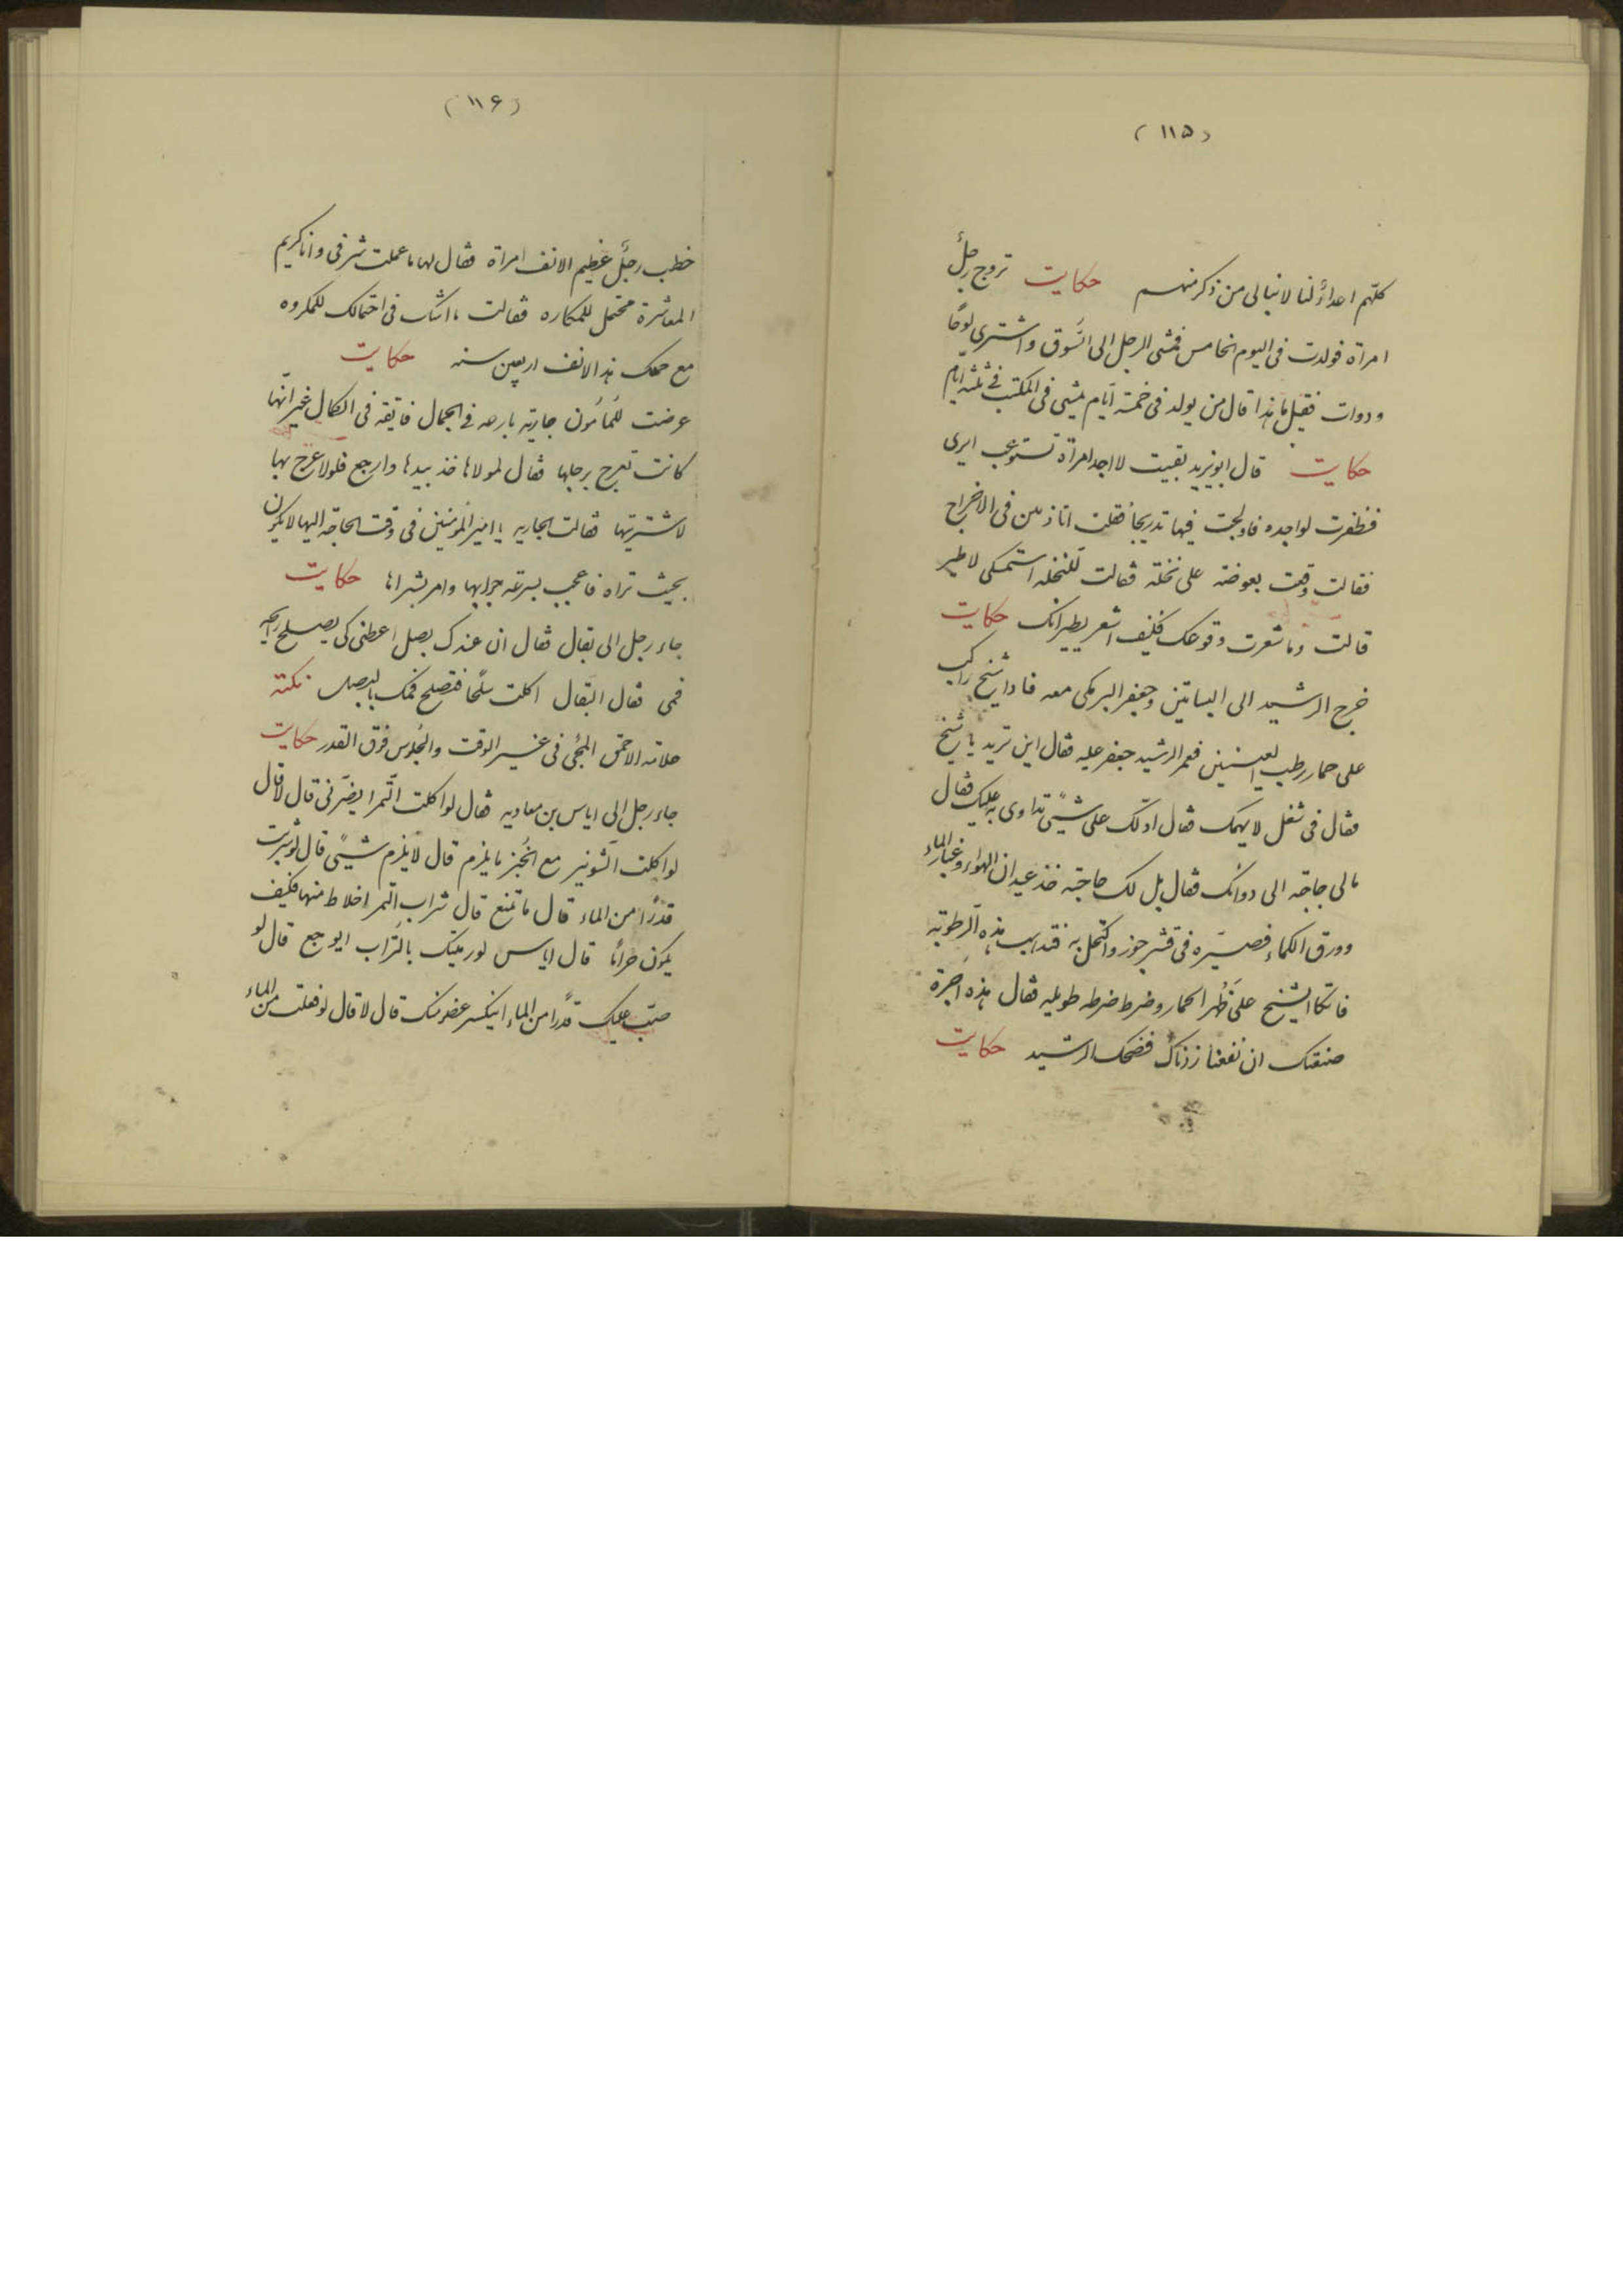 (۱۱۵)
كلّهم اعداؤنا لا نبالی من ذكر منهم حكايت تزوج رجلٌ
امراة فولدت فی اليوم الخامس فمشی الرجل الی السّوق واشتری لوحًا
ودوات فقيل ما هذا قال من يولد فی خمسة ايّام يمشی فی المكتب فی ثلثة ايّام
حكايت قال ابو يزيد بقيت لا اجد امراة تستوعب ايری
فظفرت لواحده فاولجت فيها تدريجا فقلت اتاذنين فی الاخراج
فقالت وقعت بعوضة علی نخلة فقالت للنخله استمسكی لاطير
قالت وما شعرت وقوعك فكيف اشعر بطيرانك حكايت
خرج الرشيد الی البساتين وجعفر البرمكی معه فاذا شيخ راكب
علی حمار رطب العينين فغمر الرشيد جعفر عليه فقال اين تريد يا شيخ
فقال فی شغل لا يهمك فقال ادلّك علی شیئً تداوی به عليك فقال
مالی حاجة الی دوائك فقال بل لك حاجة خذ عيدان الهواء وغبار الماء
وورق الكماء فصيّره فی قشر جوز واكتحل به فتذهب هذه الرطوبة
فاتكا الشيخ علی ظهر الحمار وضرط ضرطه طويله فقال هذه اجرة
صنعتك ان نفعنا زدناك فضحك الرشيد حكايت
(۱۱۶)
خطب رجلٌ عظيم الانف امراة فقال لها ما عملت شرفی وانا كريم
المعاشرة محتمل للمكاره فقالت ما اشك فی احتمالك للمكروه
مع حملك هذا الانف اربعين سنه حكايت
عرضت للمأمون جارية بارعه فی الجمال فايقه فی الكمال غير انّها
كانت تعرج برجلها فقال لمولاها خذ بيدها وارجع فلولا عرج بها
لاشتريتها فقالت الجاريه يا امير المؤمنين فی وقت الحاجة اليها لا يكون
بحيث تراه فاعجب بسرعة جوابها وامر بشراها حكايت
جاء رجل الی بقال فقال ان عندك بصل اعطنی كی يصلح رايحه
فمی فقال البقال اكلت سلحًا فتصلح فمك بالبصل نكته
علامة الاحمق المجئ فی غير الوقت والجلوس فوق القدر حكايت
جاء رجل الی اياس بن معاويه فقال لو اكلت التّمر ايضرّنی قال لا قال
لو اكلت الشونيز مع الخبز ما يلزم قال لا يلزم شیئً قال لو شربت
قدرًا من الماء قال ما تمنع قال شراب التمر اخلاط منها فكيف
يكون حرامًا قال اياس لو رميتك بالتّراب ايوجع قال لو
صبّ عليك قدرًا من الماء اينكسر عضو منك قال لا قال لو فعلت من الماء